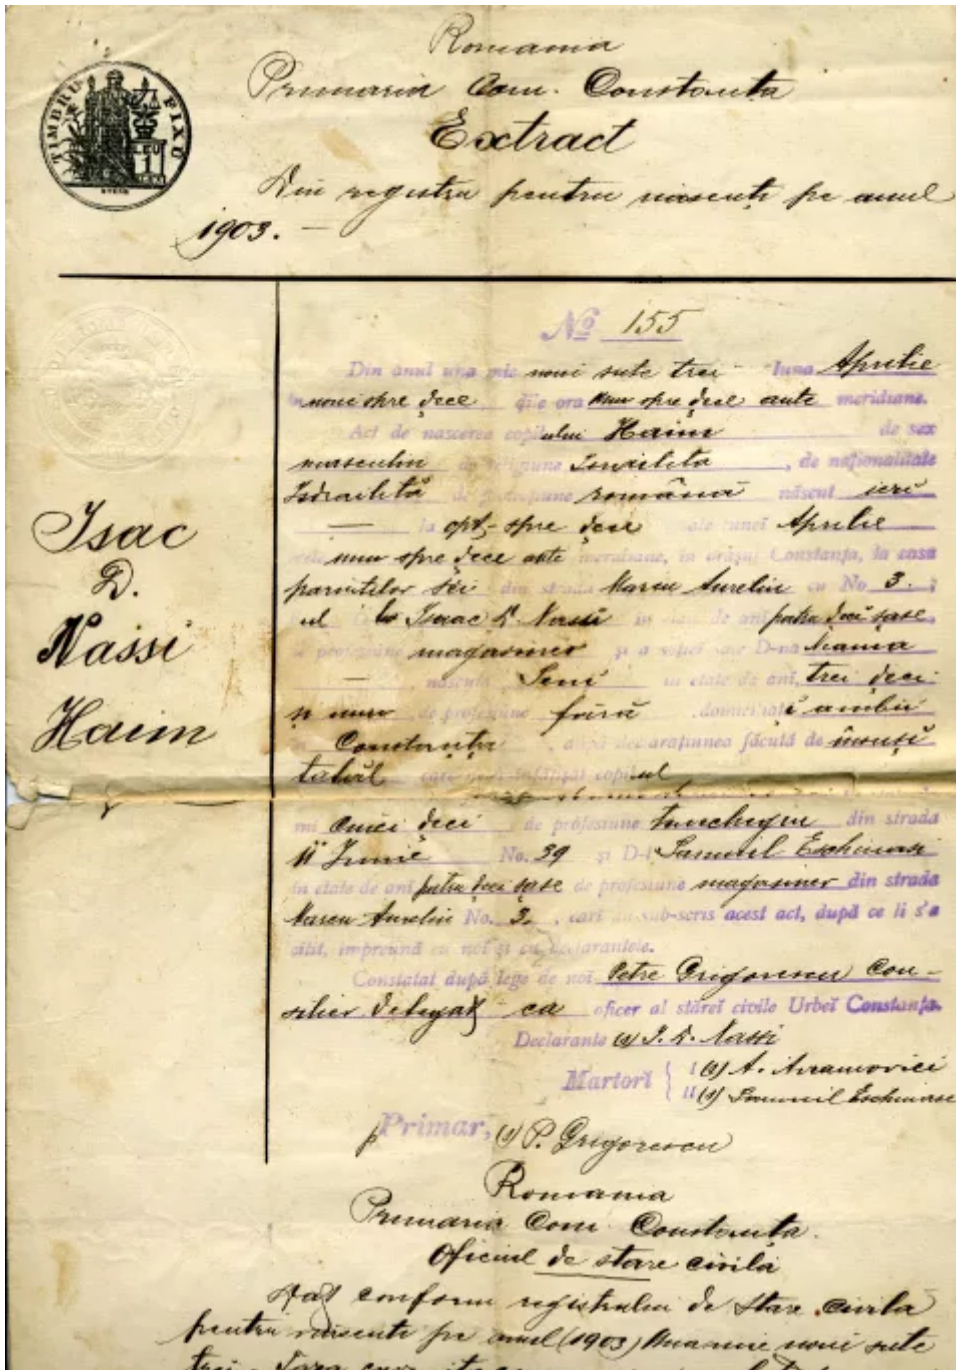 Romania
Primaria Com. Constanța
Extract
Din registru pentru născuți pe anul
1903. —
TIMBRU FIXU
LEU
1
No 155
Din anul una mie noui sute trei luna Aprilie
in noui spre dece dile ora unu spre dece ante meridiane.
Act de nascerea copilului Haim de sex
masculin de religiune Israilita, de naționalitate
Isdraelită de protecțiune română născut ieri
— la opt-spre dece ale lunei Aprilie
unu spre dece ante meridiane, in orașul Constanța, la casa
parintilor sei din strada Marcu Aureliu cu No 3.
ul Isaac D. Nassi in etate de ani patru deci șase,
de profesiune magasiner și a soției sale D-na
— născută in etate de ani, trei deci
și unu de profesiune fără domiciliați ambii
in Constanța, după declarațiunea făcută de însuși
tatăl care ne-a înfățișat copilul
Isac
D.
Nassi
Haim
mi cinci deci de profesiune din strada
11 Iunie No. 39 și D-l Samuil Eschinasi
in etate de ani patru deci șase de profesiune magasiner din strada
Marcu Aureliu No. 3, cari au sub-scris acest act, după ce li s'a
citit, impreună cu noi și cu declarantele.
Constatat după lege de noi Petre Grigorescu Con-
silier delegat ca oficer al stărei civile Urbei Constanța.
Declarante (s) I. D. Nassi
Martori { I (s) A. Avramovici
II (s) Samuil Eschinasi
p Primar, (s) P. Grigorescu
Romania
Primaria Com. Constanța.
Oficiul de stare civilă
Dat conform registrului de stare civila
pentru născuti pe anul (1903) Una mie noui sute
trei